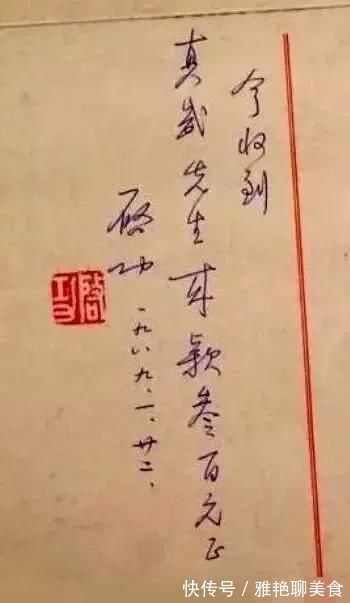 今收到
真威先生来款叁百元正
啓功 一九八九、一、廿二、
啓功
快传号／雅艳聊美食